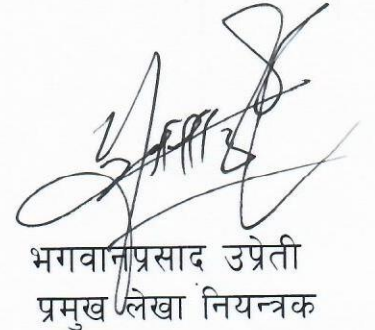 भगवानप्रसाद उप्रेती
प्रमुख लेखा नियन्त्रक